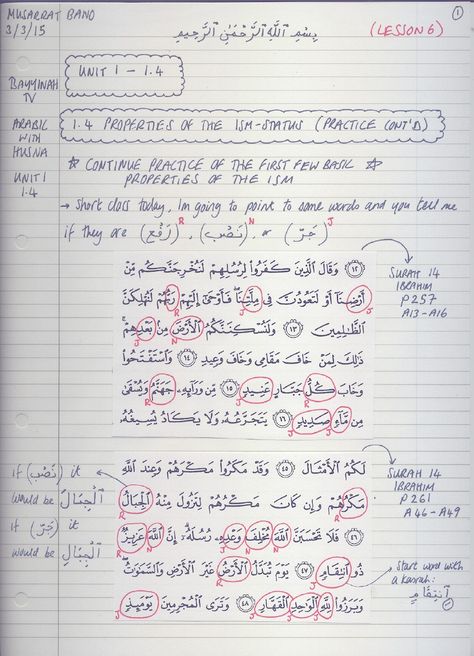 MUSARRAT BANO
3/3/15
بِسْمِ اللَّهِ الرَّحْمَٰنِ الرَّحِيمِ
(LESSON 6)
1
UNIT 1 - 1.4
BAYYINAH
TV
ARABIC
WITH
HUSNA
UNIT 1
1.4
1.4 PROPERTIES OF THE ISM-STATUS (PRACTICE CONT'D)
☆ CONTINUE PRACTICE OF THE FIRST FEW BASIC ☆
PROPERTIES OF THE ISM
→ Short class today, Im going to point to some words and you tell me
R N J
if they are (رَفْع), (نَصْب), or (جَرّ)
١٢ وَقَالَ الَّذِينَ كَفَرُوا لِرُسُلِهِمْ لَنُخْرِجَنَّكُم مِّنْ
أَرْضِنَا أَوْ لَتَعُودُنَّ فِي مِلَّتِنَا فَأَوْحَىٰ إِلَيْهِمْ رَبُّهُمْ لَنُهْلِكَنَّ
الظَّالِمِينَ ١٣ وَلَنُسْكِنَنَّكُمُ الْأَرْضَ مِن بَعْدِهِمْ
ذَٰلِكَ لِمَنْ خَافَ مَقَامِي وَخَافَ وَعِيدِ ١٤ وَاسْتَفْتَحُوا
وَخَابَ كُلُّ جَبَّارٍ عَنِيدٍ ١٥ مِّن وَرَائِهِ جَهَنَّمُ وَيُسْقَىٰ
مِن مَّاءٍ صَدِيدٍ ١٦ يَتَجَرَّعُهُ وَلَا يَكَادُ يُسِيغُهُ
SURAH 14
IBRAHIM
P257
A13-A16
لَكُمُ الْأَمْثَالَ ٤٥ وَقَدْ مَكَرُوا مَكْرَهُمْ وَعِندَ اللَّهِ
مَكْرُهُمْ وَإِن كَانَ مَكْرُهُمْ لِتَزُولَ مِنْهُ الْجِبَالُ
٤٦ فَلَا تَحْسَبَنَّ اللَّهَ مُخْلِفَ وَعْدِهِ رُسُلَهُ إِنَّ اللَّهَ عَزِيزٌ
ذُو انتِقَامٍ ٤٧ يَوْمَ تُبَدَّلُ الْأَرْضُ غَيْرَ الْأَرْضِ وَالسَّمَاوَاتُ
وَبَرَزُوا لِلَّهِ الْوَاحِدِ الْقَهَّارِ ٤٨ وَتَرَى الْمُجْرِمِينَ يَوْمَئِذٍ
SURAH 14
IBRAHIM
P261
A46-A49
if (نَصْب) it
would be الْجِبَالَ
if (جَرّ) it
would be الْجِبَالِ
Start word with
a kasrah:
اِنتِقَامٍ